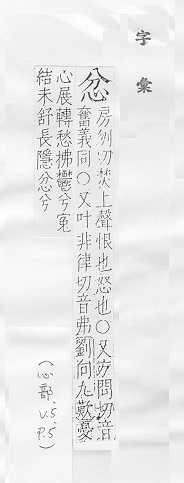 字彙
忿
房刎切焚上聲恨也怒也〇又方問切音
奮義同〇又叶非律切音弗劉向九歎憂
心展轉愁拂鬱兮冤
結未舒長隱忿兮
(心部, V.5, P.5)